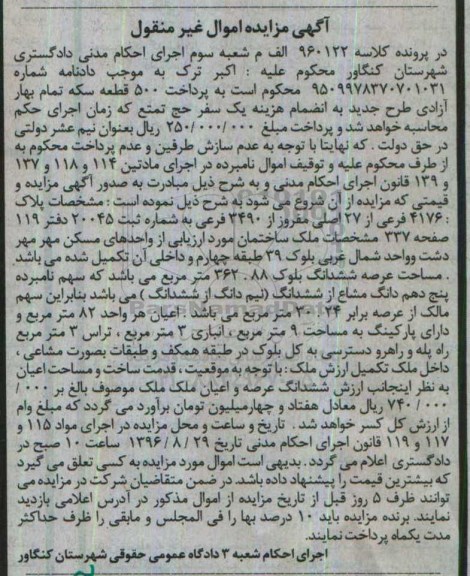 آگهی مزایده اموال غیر منقول
در پرونده کلاسه ۹۶۰۱۲۲ الف م شعبه سوم اجرای احکام مدنی دادگستری
شهرستان کنگاور محکوم علیه : اکبر ترک به موجب دادنامه شماره
۹۵۰۹۹۷۸۳۷۰۷۰۱۰۳۱ محکوم است به پرداخت ۵۰۰ قطعه سکه تمام بهار
آزادی طرح جدید به انضمام هزینه یک سفر حج تمتع که زمان اجرای حکم
محاسبه خواهد شد و پرداخت مبلغ ۲۵۰/۰۰۰/۰۰۰ ریال بعنوان نیم عشر دولتی
در حق دولت . که نهایتا با توجه به عدم سازش طرفین و عدم پرداخت محکوم به
از طرف محکوم علیه و توقیف اموال نامبرده در اجرای مادتین ۱۱۴ و ۱۱۸ و ۱۳۷
و ۱۳۹ قانون اجرای احکام مدنی و به شرح ذیل مبادرت به صدور آگهی مزایده و
قیمتی که مزایده از آن شروع می شود به شرح ذیل نموده است : مشخصات پلاک
: ۴۱۷۶ فرعی از ۲۷ اصلی مفروز از ۳۴۹۰ فرعی به شماره ثبت ۲۰۰۴۵ دفتر ۱۱۹
صفحه ۳۳۷ مشخصات ملک ساختمان مورد ارزیابی از واحدهای مسکن مهر مهر
دشت وواحد شمال غربی بلوک ۳۹ طبقه چهارم و داخلی آن تکمیل شده می باشد
. مساحت عرصه ششدانگ بلوک ۳۶۲.۸۸ متر مربع می باشد که سهم نامبرده
پنج دهم دانگ مشاع از ششدانگ (نیم دانگ از ششدانگ ) می باشد بنابراین سهم
مالک از عرصه برابر ۳۰.۲۴ متر مربع می باشد . اعیان هر واحد ۸۲ متر مربع و
دارای پارکینگ به مساحت ۹ متر مربع ، انباری ۳ متر مربع ، تراس ۳ متر مربع
راه پله و راهرو دسترسی به کل بلوک در طبقه همکف و طبقات بصورت مشاعی ،
داخل ملک تکمیل ارزش ملک : با توجه به موقعیت ، قدمت ساخت و مساحت اعیان
به نظر اینجانب ارزش ششدانگ عرصه و اعیان ملک ملک موصوف بالغ بر ۰۰۰/
۷۴۰/۰۰۰ ریال معادل هفتاد و چهارمیلیون تومان برآورد می گردد که مبلغ وام
از ارزش کل کسر خواهد شد . تاریخ و ساعت و محل مزایده در اجرای مواد ۱۱۵ و
۱۱۷ و ۱۱۹ قانون اجرای احکام مدنی تاریخ ۲۹ / ۸ / ۱۳۹۶ ساعت ۱۰ صبح در
دادگستری اعلام می گردد . بدیهی است اموال مورد مزایده به کسی تعلق می گیرد
که بیشترین قیمت را پیشنهاد داده باشد. در ضمن متقاضیان شرکت در مزایده می
توانند ظرف ۵ روز قبل از تاریخ مزایده از اموال مذکور در آدرس اعلامی بازدید
نمایند. برنده مزایده باید ۱۰ درصد بها را فی المجلس و مابقی را ظرف حداکثر
مدت یکماه پرداخت نمایند.
اجرای احکام شعبه ۳ دادگاه عمومی حقوقی شهرستان کنگاور